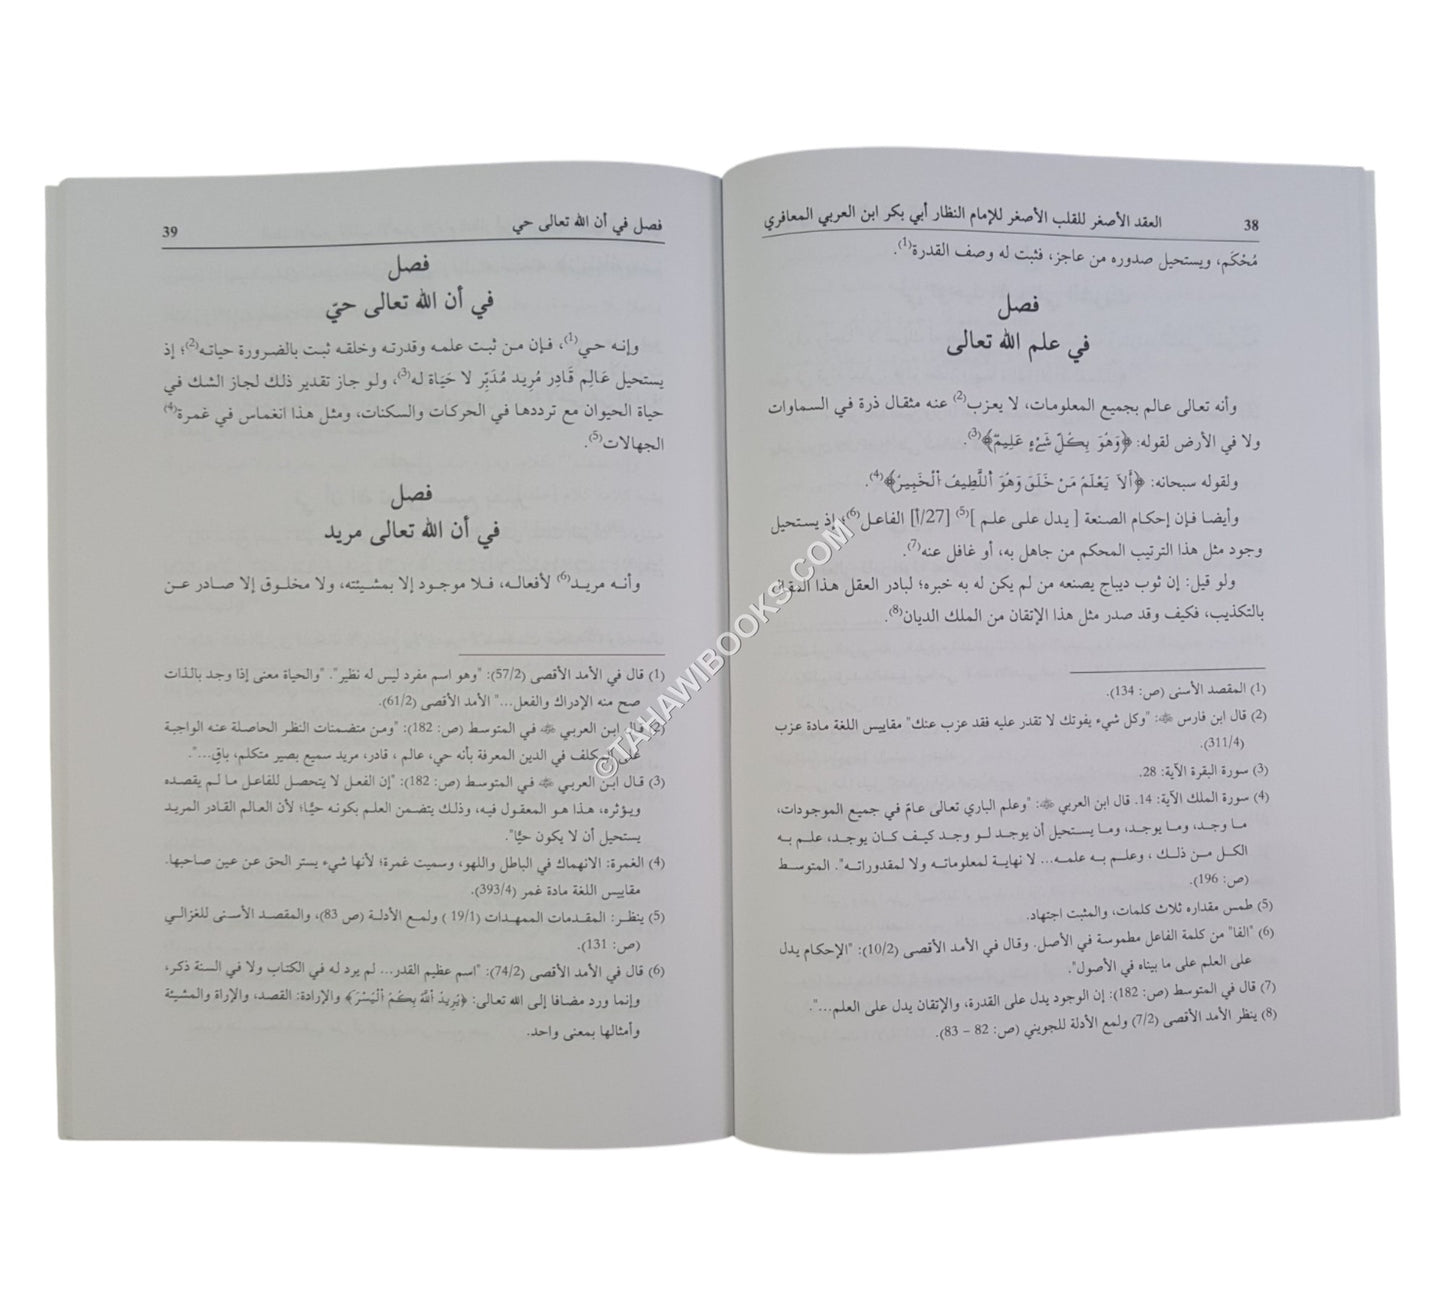 38 العقد الأصغر للقلب الأصغر للإمام النظار أبي بكر ابن العربي المعافري
مُحْكَم، ويستحيل صدوره من عاجز، فثبت له وصف القدرة(1).
فصل
في علم الله تعالى
وأنه تعالى عالم بجميع المعلومات، لا يعزب(2) عنه مثقال ذرة في السماوات
ولا في الأرض لقوله: ﴿وَهُوَ بِكُلِّ شَيْءٍ عَلِيمٌ﴾(3).
ولقوله سبحانه: ﴿أَلَا يَعْلَمُ مَنْ خَلَقَ وَهُوَ اَللَّطِيفُ اُلْخَبِيرُ﴾(4).
وأيضا فإن إحكام الصنعة [ يدل على علم ](5) [27/أ] الفاعل(6)؛ إذ يستحيل
وجود مثل هذا الترتيب المحكم من جاهل به، أو غافل عنه(7).
ولو قيل: إن ثوب ديباج يصنعه من لم يكن له به خبره؛ لبادر العقل هذا المقال
بالتكذيب، فكيف وقد صدر مثل هذا الإتقان من الملك الديان(8).
(1) المقصد الأسنى (ص: 134).
(2) قال ابن فارس ﵀: "وكل شيء يفوتك لا تقدر عليه فقد عزب عنك" مقاييس اللغة مادة عزب
(311/4).
(3) سورة البقرة الآية: 28.
(4) سورة الملك الآية: 14. قال ابن العربي ﵀: "وعلم الباري تعالى عامّ في جميع الموجودات،
ما وجد، وما يوجد، وما يستحيل أن يوجد لو وجد كيف كان يوجد، علم به
الكل من ذلك ، وعلم به علمه... لا نهاية لمعلوماته ولا لمقدوراته". المتوسط
(ص: 196).
(5) طمس مقداره ثلاث كلمات، والمثبت اجتهاد.
(6) "الفا" من كلمة الفاعل مطموسة في الأصل. وقال في الأمد الأقصى (10/2): "الإحكام يدل
على العلم على ما بيناه في الأصول".
(7) قال في المتوسط (ص: 182): إن الوجود يدل على القدرة، والإتقان يدل على العلم...".
(8) ينظر الأمد الأقصى (7/2) ولمع الأدلة للجويني (ص: 82 – 83).
فصل في أن الله تعالى حي 39
فصل
في أن الله تعالى حيّ
وإنه حي(1)، فإن من ثبت علمه وقدرته وخلقه ثبت بالضرورة حياته(2)؛ إذ
يستحيل عَالِم قَادِر مُرِيد مُدَبِّر لا حَيَاة له(3)، ولو جاز تقدير ذلك لجاز الشك في
حياة الحيوان مع ترددها في الحركات والسكنات، ومثل هذا انغماس في غمرة(4)
الجهالات(5).
فصل
في أن الله تعالى مريد
وأنه مريد(6) لأفعاله، فلا موجود إلا بمشيئته، ولا مخلوق إلا صادر عن
(1) قال في الأمد الأقصى (57/2): "وهو اسم مفرد ليس له نظير". "والحياة معنى إذا وجد بالذات
صح منه الإدراك والفعل..." الأمد الأقصى (61/2).
(2) قال ابن العربي ﵀ في المتوسط (ص: 182): "ومن متضمنات النظر الحاصلة عنه الواجبة
على المكلف في الدين المعرفة بأنه حي، عالم ، قادر، مريد سميع بصير متكلم، باقٍ...".
(3) قال ابن العربي ﵀ في المتوسط (ص: 182): "إن الفعل لا يتحصل للفاعل ما لم يقصده
ويؤثره، هذا هو المعقول فيه، وذلك يتضمن العلم بكونه حيًّا؛ لأن العالم القادر المريد
يستحيل أن لا يكون حيًّا".
(4) الغمرة: الانهماك في الباطل واللهو، وسميت غمرة؛ لأنها شيء يستر الحق عن عين صاحبها.
مقاييس اللغة مادة غمر (393/4).
(5) ينظر: المقدمات الممهدات (19/1 ) ولمع الأدلة (ص 83)، والمقصد الأسنى للغزالي
(ص: 131).
(6) قال في الأمد الأقصى (74/2): "اسم عظيم القدر... لم يرد له في الكتاب ولا في السنة ذكر،
وإنما ورد مضافا إلى الله تعالى: ﴿يُرِيدُ اُللَّهُ بِكُمُ اُلْيُسْرَ﴾ والإرادة: القصد، والإراة والمشيئة
وأمثالها بمعنى واحد.
©TAHAWIBOOKS.COM